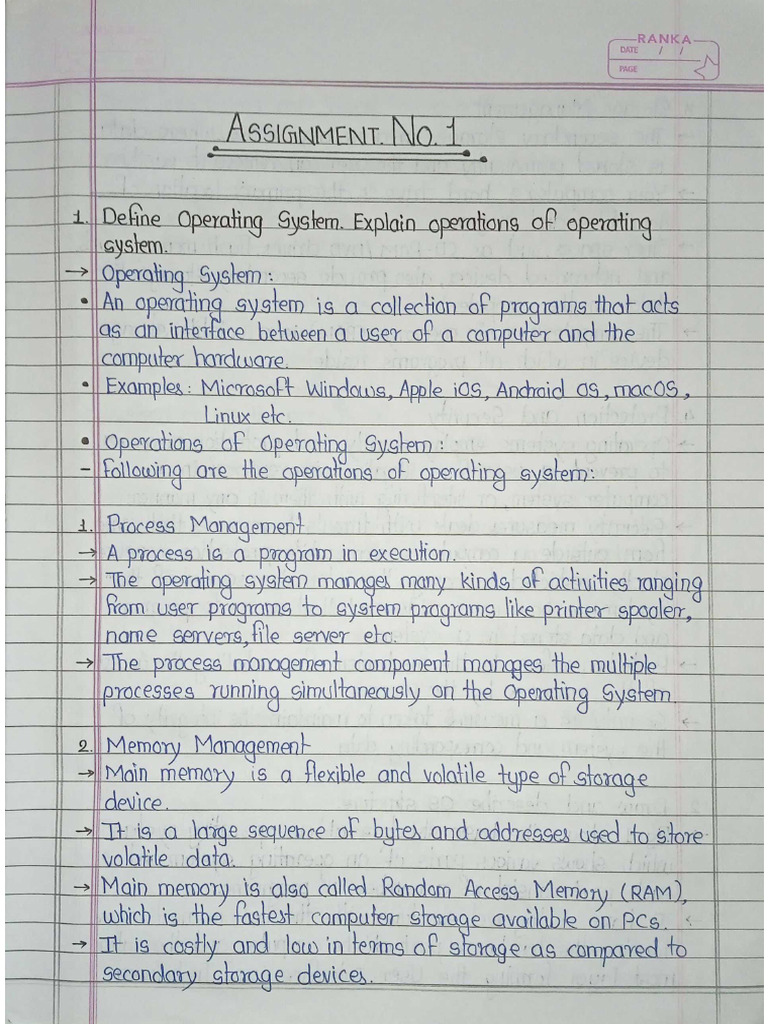 RANKA
DATE / /
PAGE
ASSIGNMENT. NO. 1
1. Define Operating System. Explain operations of operating
system.
→ Operating System:
• An operating system is a collection of programs that acts
as an interface between a user of a computer and the
computer hardware.
• Examples: Microsoft Windows, Apple iOS, Android OS, macOS,
Linux etc.
• Operations of Operating System:
- Following are the operations of operating system:
1. Process Management
→ A process is a program in execution.
→ The operating system manages many kinds of activities ranging
from user programs to system programs like printer spooler,
name servers, file server etc.
→ The process management component manages the multiple
processes running simultaneously on the Operating System.
2. Memory Management
→ Main memory is a flexible and volatile type of storage
device.
→ It is a large sequence of bytes and addresses used to store
volatile data.
→ Main memory is also called Random Access Memory (RAM),
which is the fastest computer storage available on PCs.
→ It is costly and low in terms of storage as compared to
secondary storage devices.